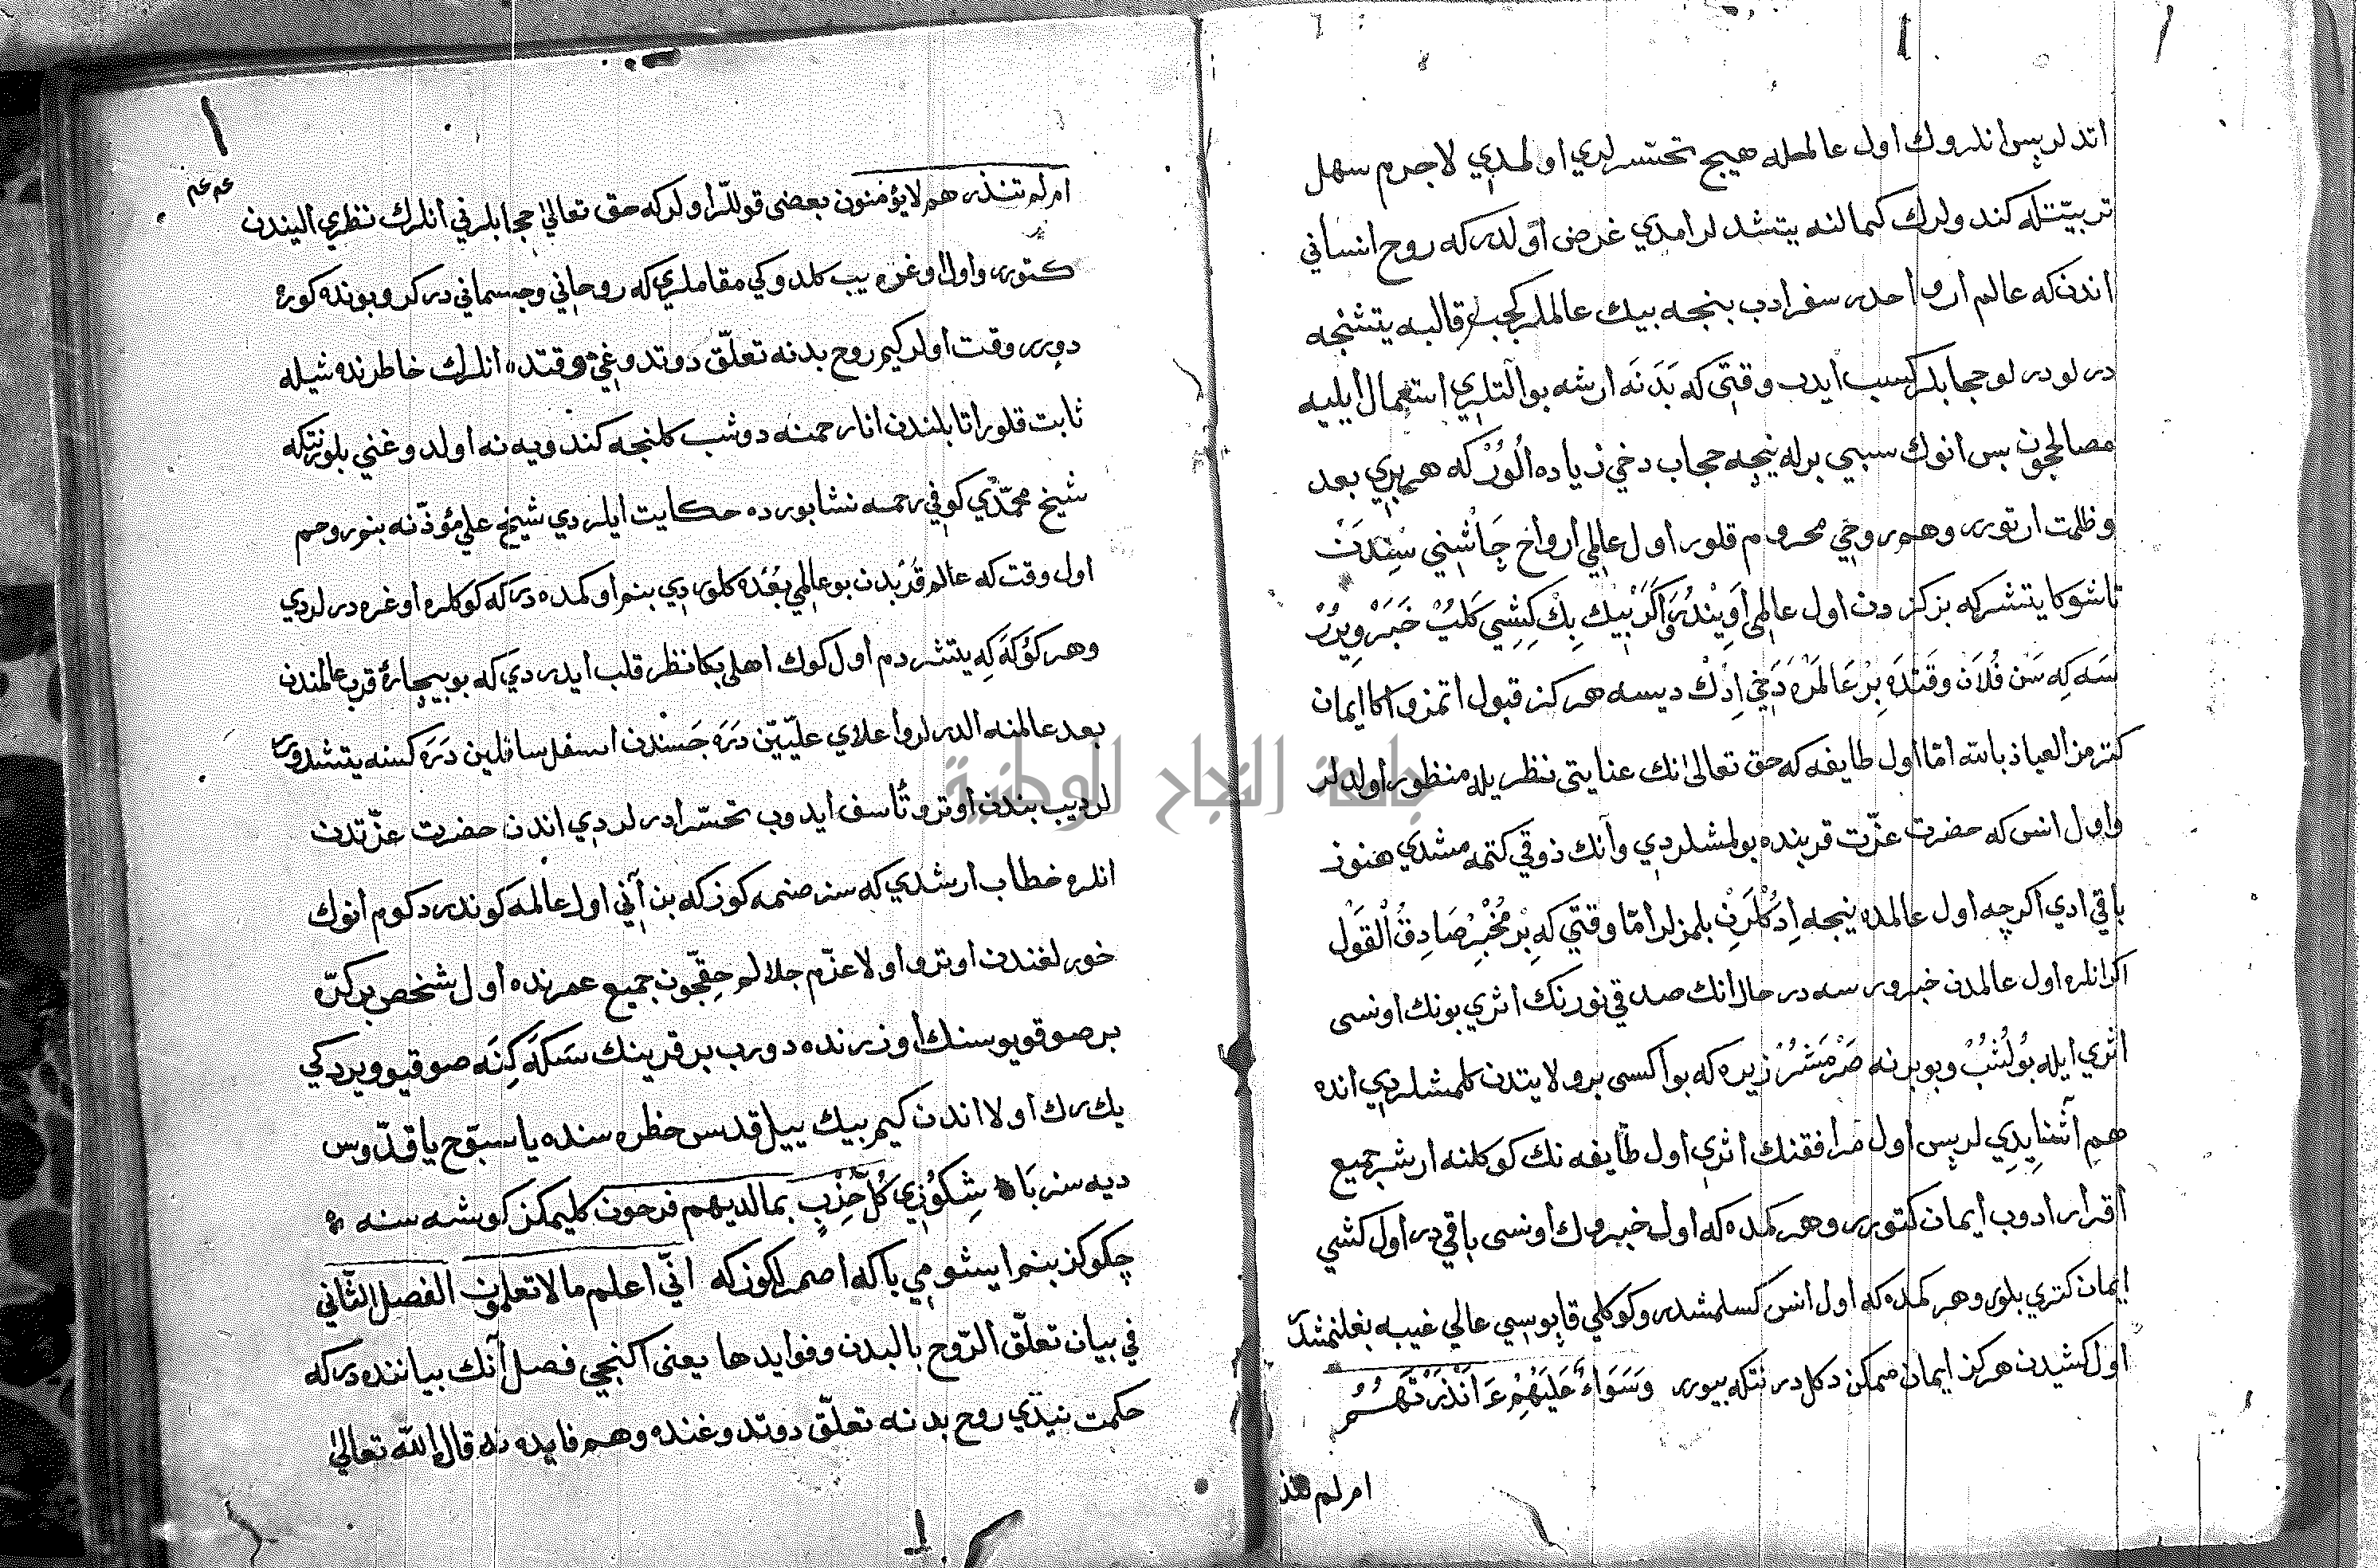 اتدلر پس انلروك اول عالمله هيچ تحتسرلري اولمدي لاجرم سهل
تربيتله كندولرك كمالنه يتشدلر امدي غرض اولدر كه روح انساني
اندن كه عالم ارواحدر سفر ادب بنجه بيك عالملر كجب قالبه يتشنجه
درلو درلو حجابلر كسب ايدب وقتى كه بَدَنَه ارشه بو آلتلري استعمال ايليه
مصالحچون بس انوك سببي برله نيجه حجاب دخي زياده الُورْ كه هر بري بعد
وظلمت ارتورر وهم روحي محروم قلور اول عالمي ارواح چَاشنِي سنِدَنْ
تا شوكا يتشر كه بزكزدن اول عالمي اَوِينْدُرر اكَرْ بيك بِكْ كِشِي كَلُبْ خَبَرْ ويرُرْ
سَه كِه سَن فُلَانْ وقَتدَه بِرْ عَالَمْدَه دَخِي اِدكْ ديسه هركز قبول اتمز و اكا ايمان
كترمز العياذ بالله امّا اول طايفه كه حق تعالىٰ نك عنايتى نظريله منظور اولدلر
واول انس كه حضرت عزّت قربنده بولمشلردي وآنك ذوقي كتمه مشدي هنوز
باقي ادي اكرچه اول عالمده نيجه اِدُكْلَرِنْ بلمزلر امّا وقتي كه بِرْ مُخْبِرْ صَادِقُ الْقَوْل
اكا انلره اول عالمدن خبر ورسه در حال انك صدقي نورنك اثري بونك اونسى
اثري ايله بُولُشُبْ وبو برنه صَرْمَشُرْ زيره كه بو اكسى برو لايتدن كلمشلردي انده
هم آشنايدي لر پس اول مرافقتك اثري اول طايفه نك كوكلنه ارشر جميع
اقرار ادوب ايمان كتورر وهر كمده كه اول خبروك اونسى باقي در اول كشي
ايمان كتري بلور وهر كمده كه اول انس كسلمشدر وكوكلي قاپوسي عالي غيبه بغلنمشدر
اول كشيدن هركز ايمان ممكن دكل در نتكه بيورر وَسَوَاءٌ عَلَيْهِمْ ءَاَنْذَرْتَهُمْ
ام لم تنذ
ام لم تنذرهم لا يؤمنون بعضى قوللر اولر كه حق تعالىٰ حجابلرني انلرك نظري اليندن
كتورر واول اوغره يب كلدوكي مقاملري كه روحاني وجسماني در كرو بونده كوره
دورر وقت اولر كيم روح بدنه تعلّق دوتدوغي وقتده انلرك خاطرنده شيله
ثابت قلور اتا بلندن انا رحمنه دوشب كلنجه كندويه نه اولدوغني بلور نتكه
شيخ محمّدي كوفي رحمه نشابورده حكايت ايلردي شيخ علي مؤذّنه بنور وحم
اول وقت كه عالم قُرْبدن بو عالمي بُعْدَه كلوردي بنم اوكمده در كه كوكلره اوغره درلردي
وهر كَوْكَه كِه يتشردم اول كوك اهلى بكا نظر قلب ايدردي كه بو بيچارۀ قرب عالمندن
بعد عالمنه الدرلر واعلاي علّيّين دَرَه جَسْندن اسفل سافلين دَرَه كسنه يتشدورر
لر ديب بندن اوترو تأسف ايدوب تحسّر ادرلردي اندن حضرت عزّتدن
انلره خطاب ارشدي كه سز صنمه كوز كه بن آني اول عالمه كوندردكوم انوك
خورلغندن اوترو اولا عزّم جلالم حقيچون جميع عمرنده اول شخص بر كرّه
بر صو قويوسنك اوزرنده دورب بر قرينك سَكَه كِنَه صو قيو ويردكي
يك رك اولا اندن كيم بيك ييل قدس خظره سنده يا سبّوح يا قدّوس
ديه سز بَا شِكوُزِي كُلُّ حِزْبٍ بما لديهم فرحون كليمكز كوشه سنه
چكوكز بنم ايشومي باكه اصمرلكوز كه انّي اعلم مالا تعلمون الفصل الثّاني
في بيان تعلّق الرّوح بالبدن وفوايدها يعنى اكنجي فصل آنك بياننده در كه
حكمت نيدي روح بدنه تعلّق دوتدوغنده وهم فايده نه قال الله تعالىٰ